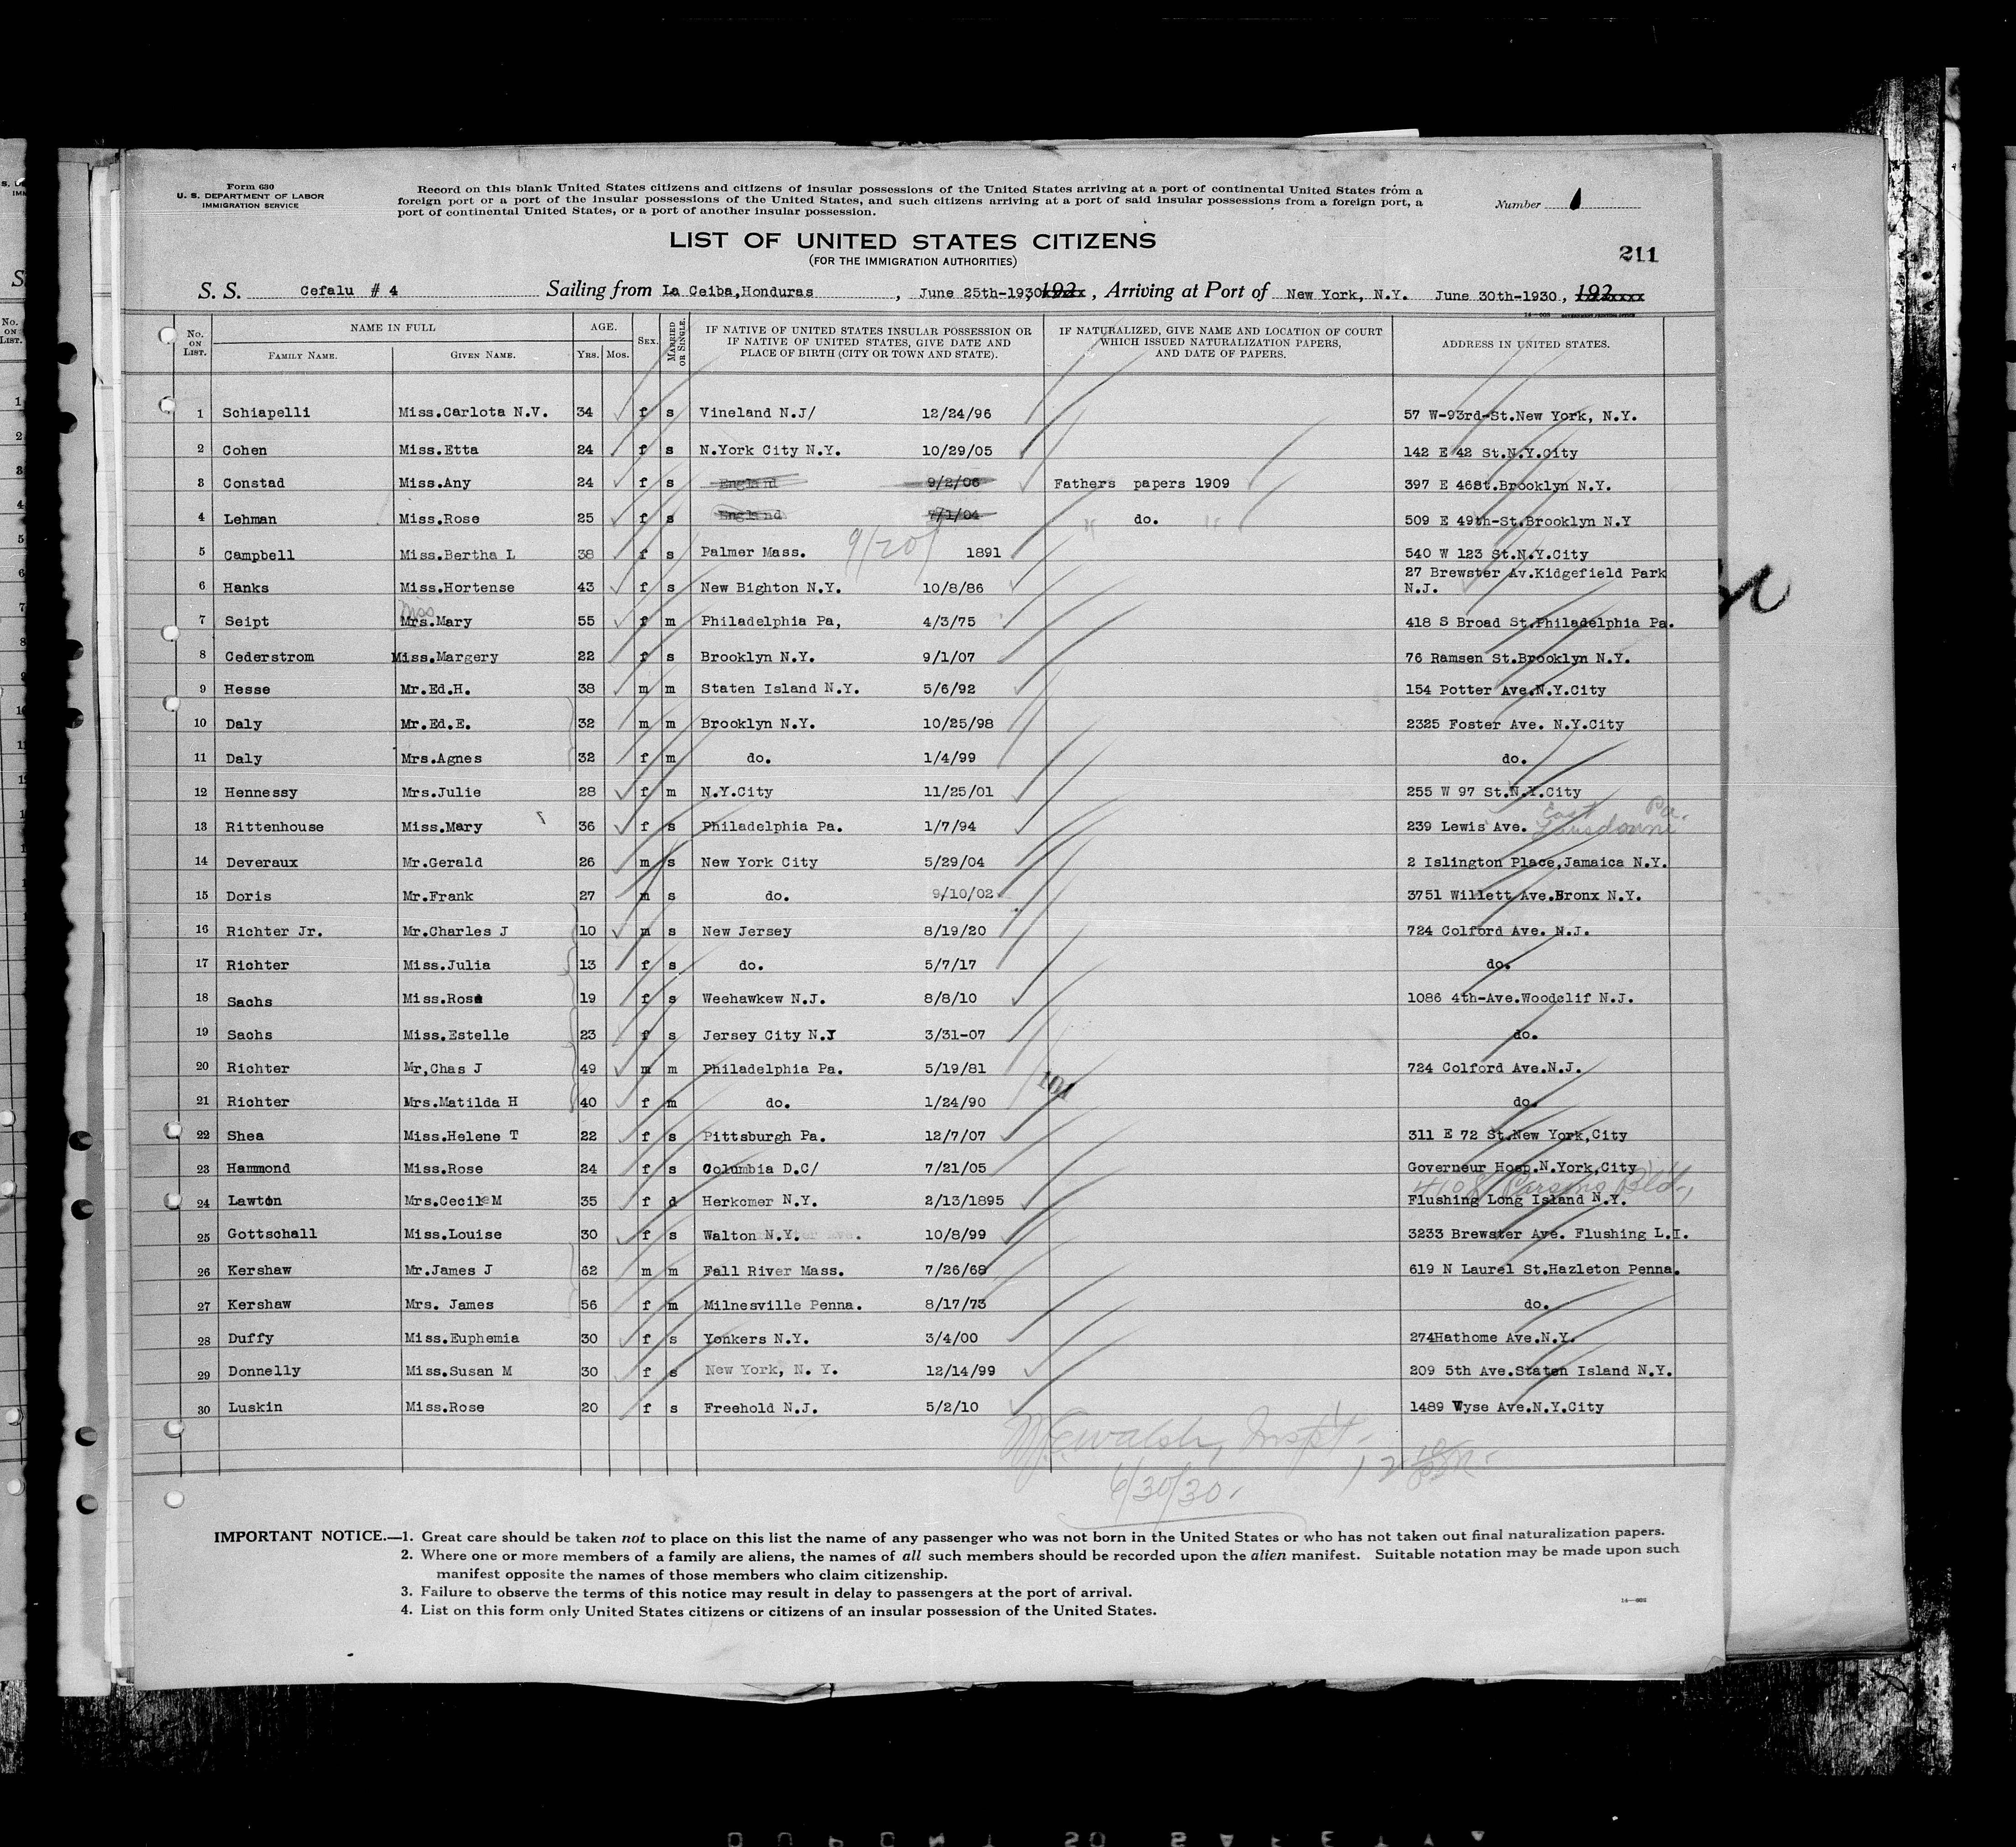 Form 630
U. S. DEPARTMENT OF LABOR
IMMIGRATION SERVICE
Record on this blank United States citizens and citizens of insular possessions of the United States arriving at a port of continental United States from a
foreign port or a port of the insular possessions of the United States, and such citizens arriving at a port of said insular possessions from a foreign port, a
port of continental United States, or a port of another insular possession.
Number 1
LIST OF UNITED STATES CITIZENS
(FOR THE IMMIGRATION AUTHORITIES)
211
S. S. Cefalu # 4 Sailing from La Ceiba,Honduras , June 25th-1930, 192xxxx , Arriving at Port of New York, N.Y. June 30th-1930 , 192xxxx
No. ON LIST. NAME IN FULL FAMILY NAME. GIVEN NAME. AGE. Yrs. Mos. SEX. MARRIED OR SINGLE. IF NATIVE OF UNITED STATES INSULAR POSSESSION OR IF NATIVE OF UNITED STATES, GIVE DATE AND PLACE OF BIRTH (CITY OR TOWN AND STATE). IF NATURALIZED, GIVE NAME AND LOCATION OF COURT WHICH ISSUED NATURALIZATION PAPERS, AND DATE OF PAPERS. ADDRESS IN UNITED STATES.
1 Schiapelli Miss.Carlota N.V. 34 f s Vineland N.J/ 12/24/96 57 W-93rd-St.New York, N.Y.
2 Cohen Miss.Etta 24 f s N.York City N.Y. 10/29/05 142 E 42 St.N.Y.City
3 Constad Miss.Any 24 f s England 9/2/06 Fathers papers 1909 397 E 46St.Brooklyn N.Y.
4 Lehman Miss.Rose 25 f s England 7/1/04 " do. " 509 E 49th-St.Brooklyn N.Y
5 Campbell Miss.Bertha L 38 f s Palmer Mass. 9/20/ 1891 540 W 123 St.N.Y.City
6 Hanks Miss.Hortense 43 f s New Bighton N.Y. 10/8/86 27 Brewster Av.Kidgefield Park
N.J.
Miss
7 Seipt Mrs.Mary 55 f m Philadelphia Pa, 4/3/75 418 S Broad St.Philadelphia Pa.
8 Cederstrom Miss.Margery 22 f s Brooklyn N.Y. 9/1/07 76 Ramsen St.Brooklyn N.Y.
9 Hesse Mr.Ed.H. 38 m m Staten Island N.Y. 5/6/92 154 Potter Ave.N.Y.City
10 Daly Mr.Ed.E. 32 m m Brooklyn N.Y. 10/25/98 2325 Foster Ave. N.Y.City
11 Daly Mrs.Agnes 32 f m do. 1/4/99 do.
12 Hennessy Mrs.Julie 28 f m N.Y.City 11/25/01 255 W 97 St.N.Y.City
13 Rittenhouse Miss.Mary 36 f s Philadelphia Pa. 1/7/94 239 Lewis Ave. East Lansdowne Pa.
14 Deveraux Mr.Gerald 26 m s New York City 5/29/04 2 Islington Place,Jamaica N.Y.
15 Doris Mr.Frank 27 m s do. 9/10/02 3751 Willett Ave.Bronx N.Y.
16 Richter Jr. Mr.Charles J 10 m s New Jersey 8/19/20 724 Colford Ave. N.J.
17 Richter Miss.Julia 13 f s do. 5/7/17 do.
18 Sachs Miss.Rose 19 f s Weehawkew N.J. 8/8/10 1086 4th-Ave.Woodclif N.J.
19 Sachs Miss.Estelle 23 f s Jersey City N.J 3/31-07 do.
20 Richter Mr,Chas J 49 m m Philadelphia Pa. 5/19/81 724 Colford Ave.N.J.
101
21 Richter Mrs.Matilda H 40 f m do. 1/24/90 do.
22 Shea Miss.Helene T 22 f s Pittsburgh Pa. 12/7/07 311 E 72 St.New York,City
23 Hammond Miss.Rose 24 f s Columbia D.C/ 7/21/05 Governeur Hosp.N.York,City
4108 Parsons Bld.,
24 Lawton Mrs.Cecile M 35 f d Herkomer N.Y. 2/13/1895 Flushing Long Island N.Y.
25 Gottschall Miss.Louise 30 f s Walton N.Y. 10/8/99 3233 Brewster Ave. Flushing L.I.
26 Kershaw Mr.James J 62 m m Fall River Mass. 7/26/68 619 N Laurel St.Hazleton Penna.
27 Kershaw Mrs. James 56 f m Milnesville Penna. 8/17/73 do.
28 Duffy Miss.Euphemia 30 f s Yonkers N.Y. 3/4/00 274Hathome Ave.N.Y.
29 Donnelly Miss.Susan M 30 f s New York, N. Y. 12/14/99 209 5th Ave.Staten Island N.Y.
30 Luskin Miss.Rose 20 f s Freehold N.J. 5/2/10 1489 Wyse Ave.N.Y.City
Walsh, Inspt.
6/30/30.
IMPORTANT NOTICE.—1. Great care should be taken not to place on this list the name of any passenger who was not born in the United States or who has not taken out final naturalization papers.
2. Where one or more members of a family are aliens, the names of all such members should be recorded upon the alien manifest. Suitable notation may be made upon such
manifest opposite the names of those members who claim citizenship.
3. Failure to observe the terms of this notice may result in delay to passengers at the port of arrival.
4. List on this form only United States citizens or citizens of an insular possession of the United States.